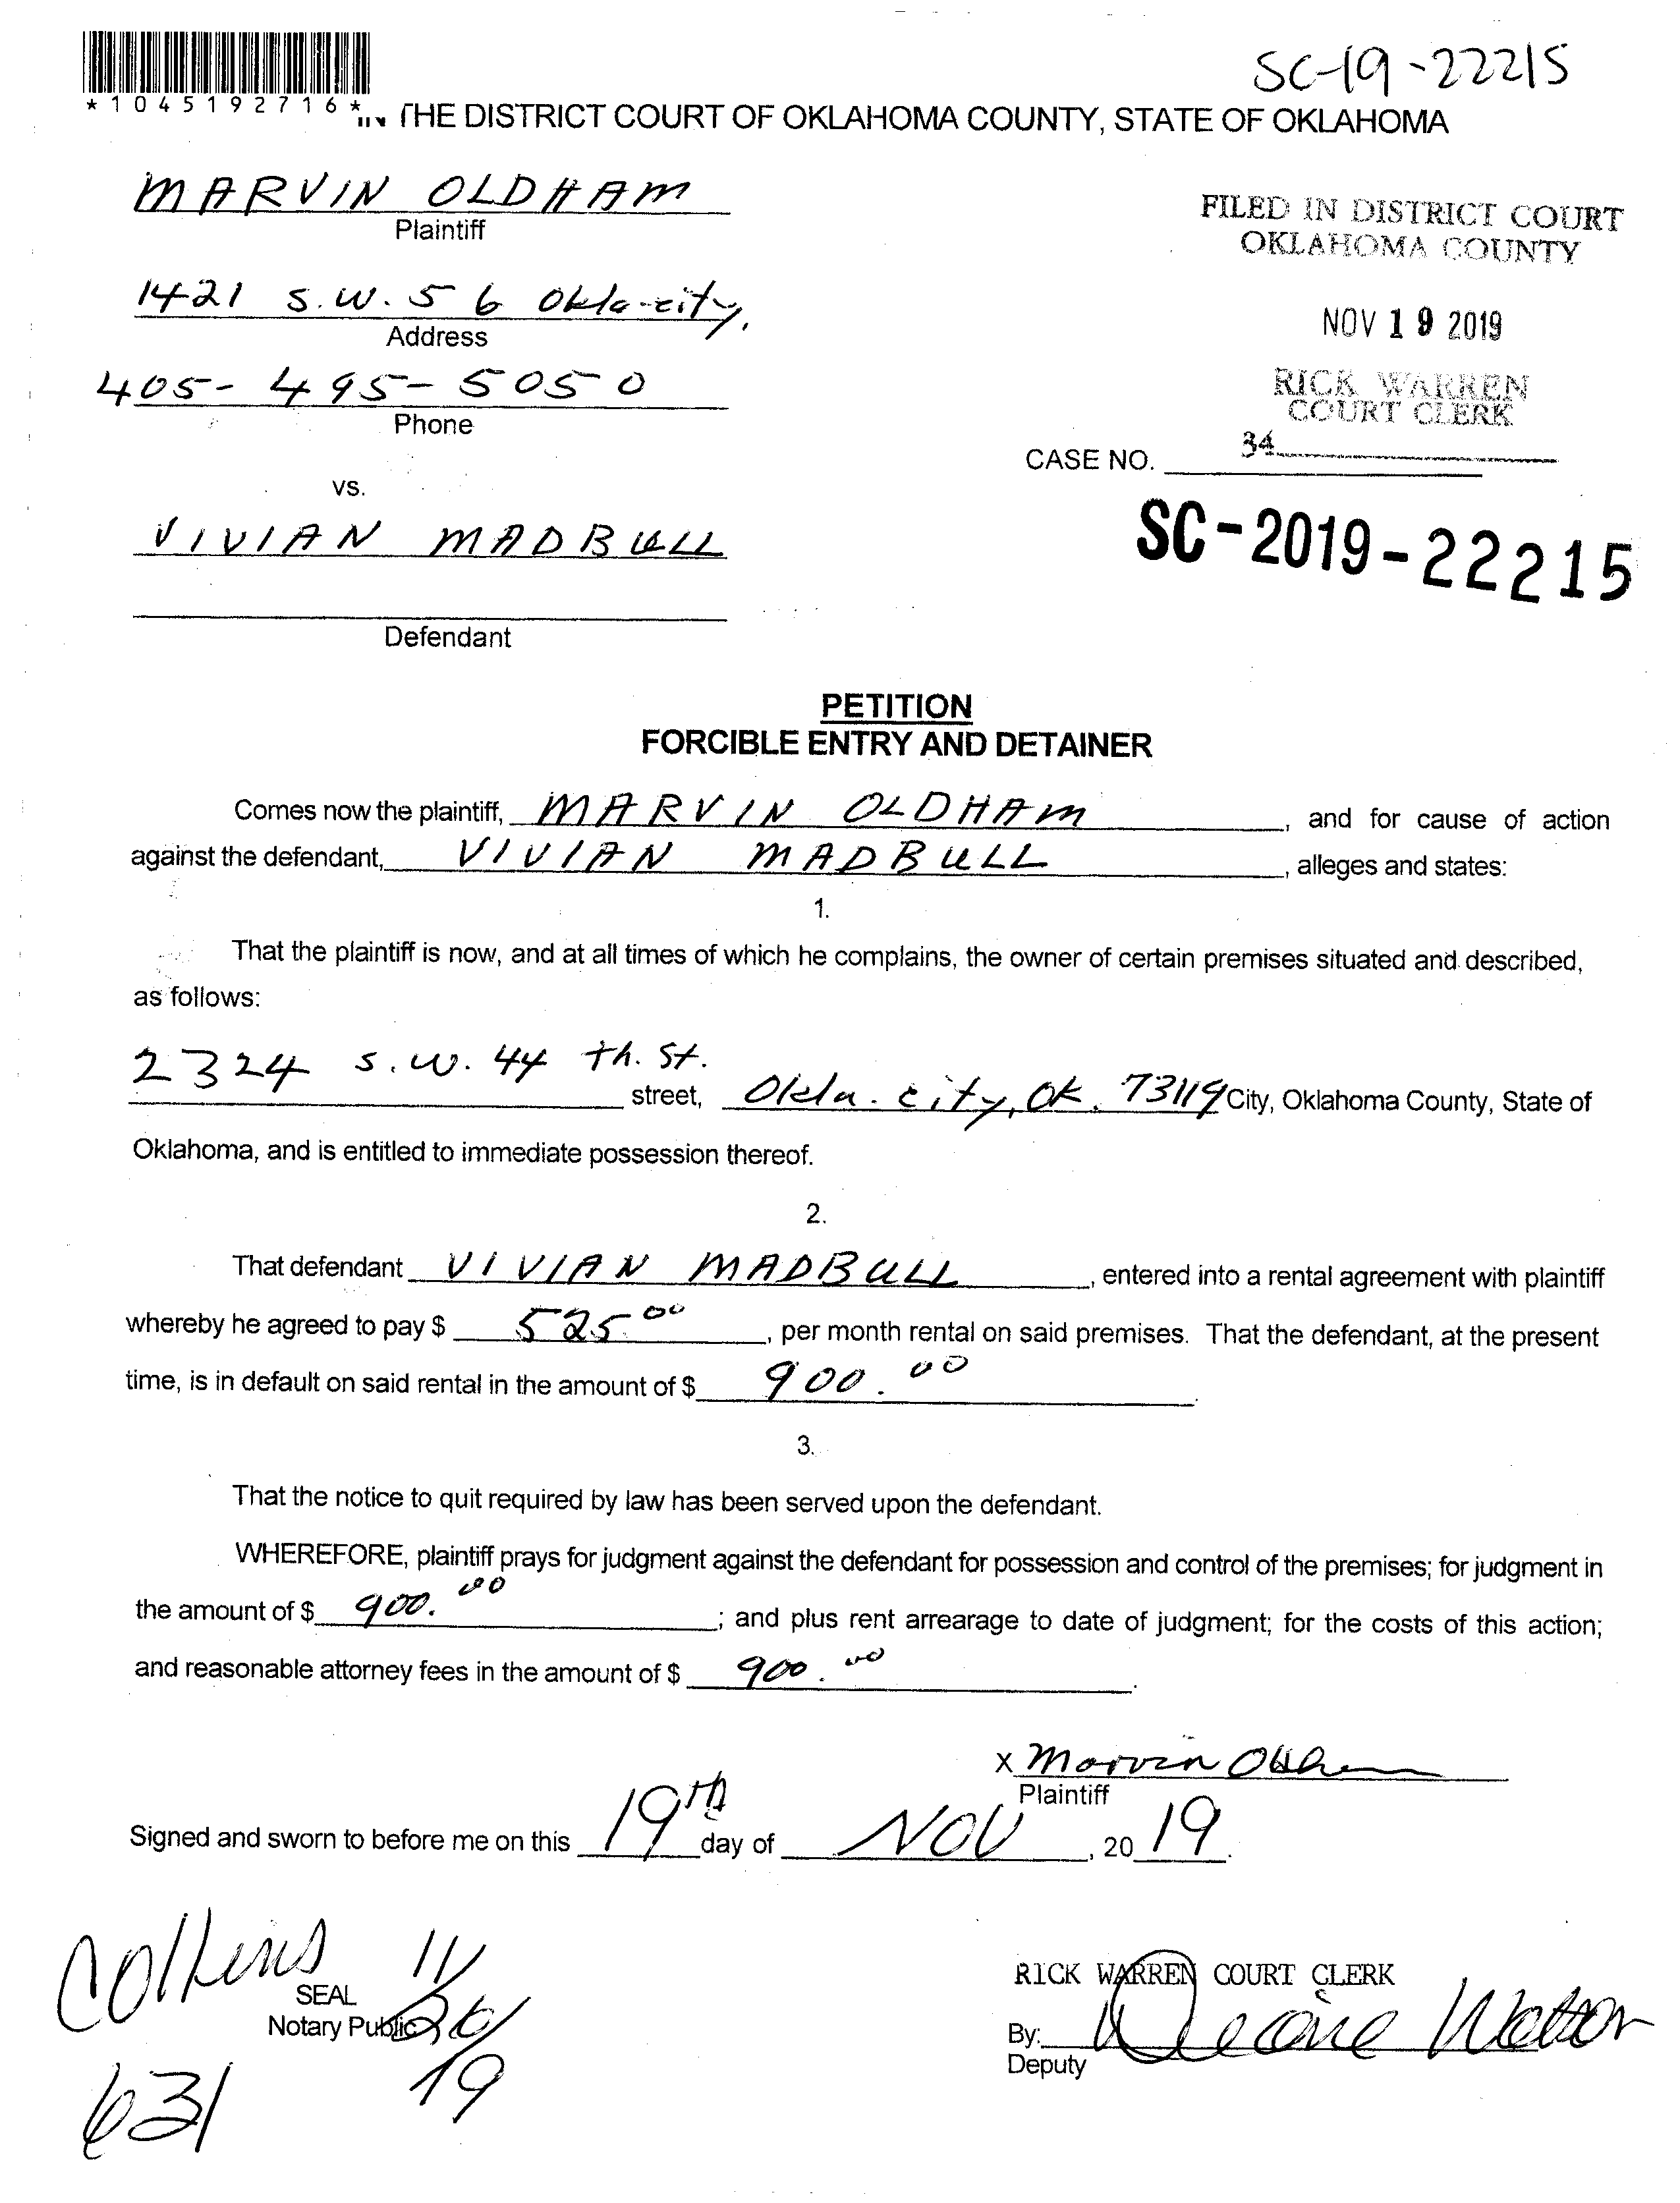 SC-19-22215
*1045192716*
IN THE DISTRICT COURT OF OKLAHOMA COUNTY, STATE OF OKLAHOMA
MARVIN OLDHAM
Plaintiff
FILED IN DISTRICT COURT
OKLAHOMA COUNTY
1421 S.W. 56 Okla-city,
Address
NOV 19 2019
405-495-5050
Phone
RICK WARREN
COURT CLERK
34
CASE NO.
vs.
VIVIAN MADBULL
SC-2019-22215
Defendant
PETITION
FORCIBLE ENTRY AND DETAINER
Comes now the plaintiff, MARVIN OLDHAM, and for cause of action
against the defendant, VIVIAN MADBULL, alleges and states:
1.
That the plaintiff is now, and at all times of which he complains, the owner of certain premises situated and described,
as follows:
2324 S.W. 44 th. St. street, Okla. city, OK. 73119 City, Oklahoma County, State of
Oklahoma, and is entitled to immediate possession thereof.
2.
That defendant VIVIAN MADBULL, entered into a rental agreement with plaintiff
whereby he agreed to pay $ 525.00, per month rental on said premises. That the defendant, at the present
time, is in default on said rental in the amount of $ 900.00.
3.
That the notice to quit required by law has been served upon the defendant.
WHEREFORE, plaintiff prays for judgment against the defendant for possession and control of the premises; for judgment in
the amount of $ 900.00; and plus rent arrearage to date of judgment; for the costs of this action;
and reasonable attorney fees in the amount of $ 900.00.
X Marvin Oldham
Plaintiff
Signed and sworn to before me on this 19th day of NOV, 2019.
Collins 11/26/19
SEAL
Notary Public
631
RICK WARREN COURT CLERK
By:
Deputy